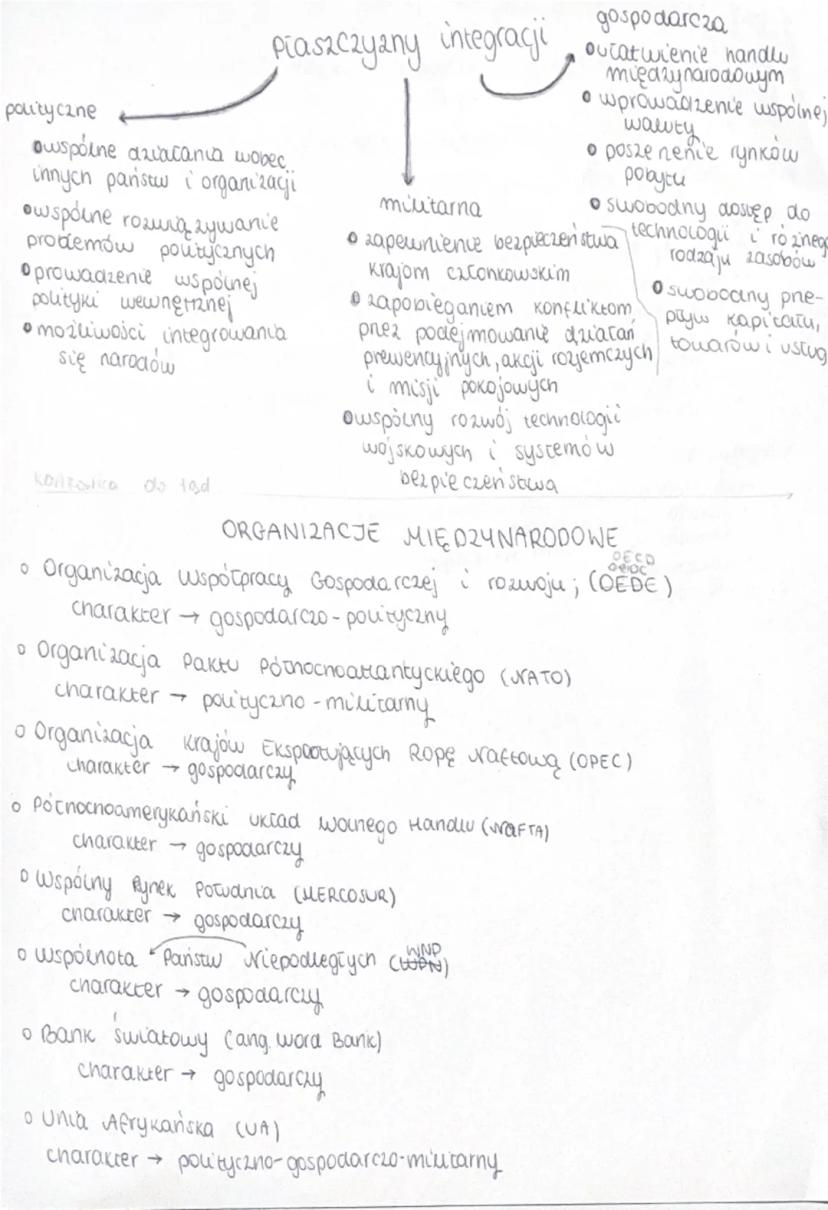 płaszczyzny integracji
polityczne
wspólne działania wobec
innych państw i organizacji
wspólne rozwiązywanie
problemów politycznych
prowadzenie wspólnej
polityki wewnętrznej
możliwości integrowania
się narodów
militarna
zapewnienie bezpieczeństwa
krajom członkowskim
zapobieganiem konfliktom
przez podejmowanie działań
prewencyjnych, akcji rozjemczych
i misji pokojowych
wspólny rozwój technologii
wojskowych i systemów
bezpieczeństwa
gospodarcza
ułatwienie handlu
międzynarodowym
wprowadzenie wspólnej
waluty
poszerzenie rynków
pobytu
swobodny dostęp do
technologii i różnego
rodzaju zasobów
swobodny prze-
pływ kapitału,
towarów i usług
kartkówka do tąd
ORGANIZACJE MIĘDZYNARODOWE
Organizacja Współpracy Gospodarczej i rozwoju; (OEDE) OECD
charakter → gospodarczo-polityczny
Organizacja Paktu Północnoatlantyckiego (NATO)
charakter → polityczno-militarny
Organizacja Krajów Eksportujących Ropę Naftową (OPEC)
charakter → gospodarczy
Północnoamerykański układ Wolnego Handlu (NAFTA)
charakter → gospodarczy
Wspólny Rynek Południa (MERCOSUR)
charakter → gospodarczy
Wspólnota Państw Niepodległych (WNP)
charakter → gospodarczy
Bank Światowy (ang. Word Bank)
charakter → gospodarczy
Unia Afrykańska (UA)
charakter → polityczno-gospodarczo-militarny